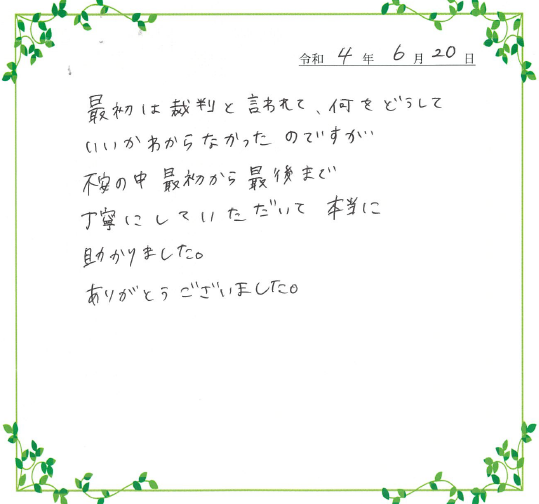 令和 4 年 6 月 20 日
最初は裁判と言われて、何をどうして
いいかわからなかったのですが
不安の中 最初から最後まで
丁寧にしていただいて 本当に
助かりました。
ありがとうございました。